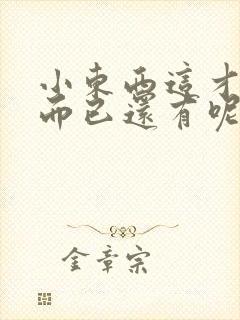 小東西這才
而已還有呢
金章宗